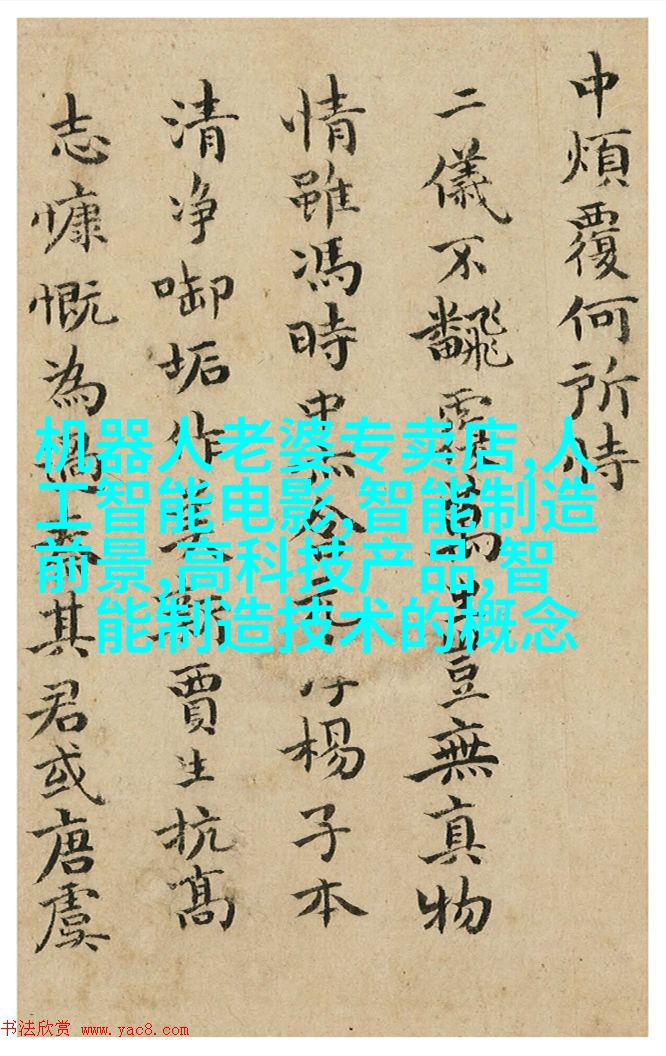 中煩覆何所恃
二儀不飜豈無真物
情雖馮時楊子本
清净啣垢作賈生抗髙
志慷慨為其君或唐虞
机器人老婆专卖店,人
工智能电影,智能制造
前景,高科技产品,智
能制造技术的概念
书法欣赏 www.yac8.com